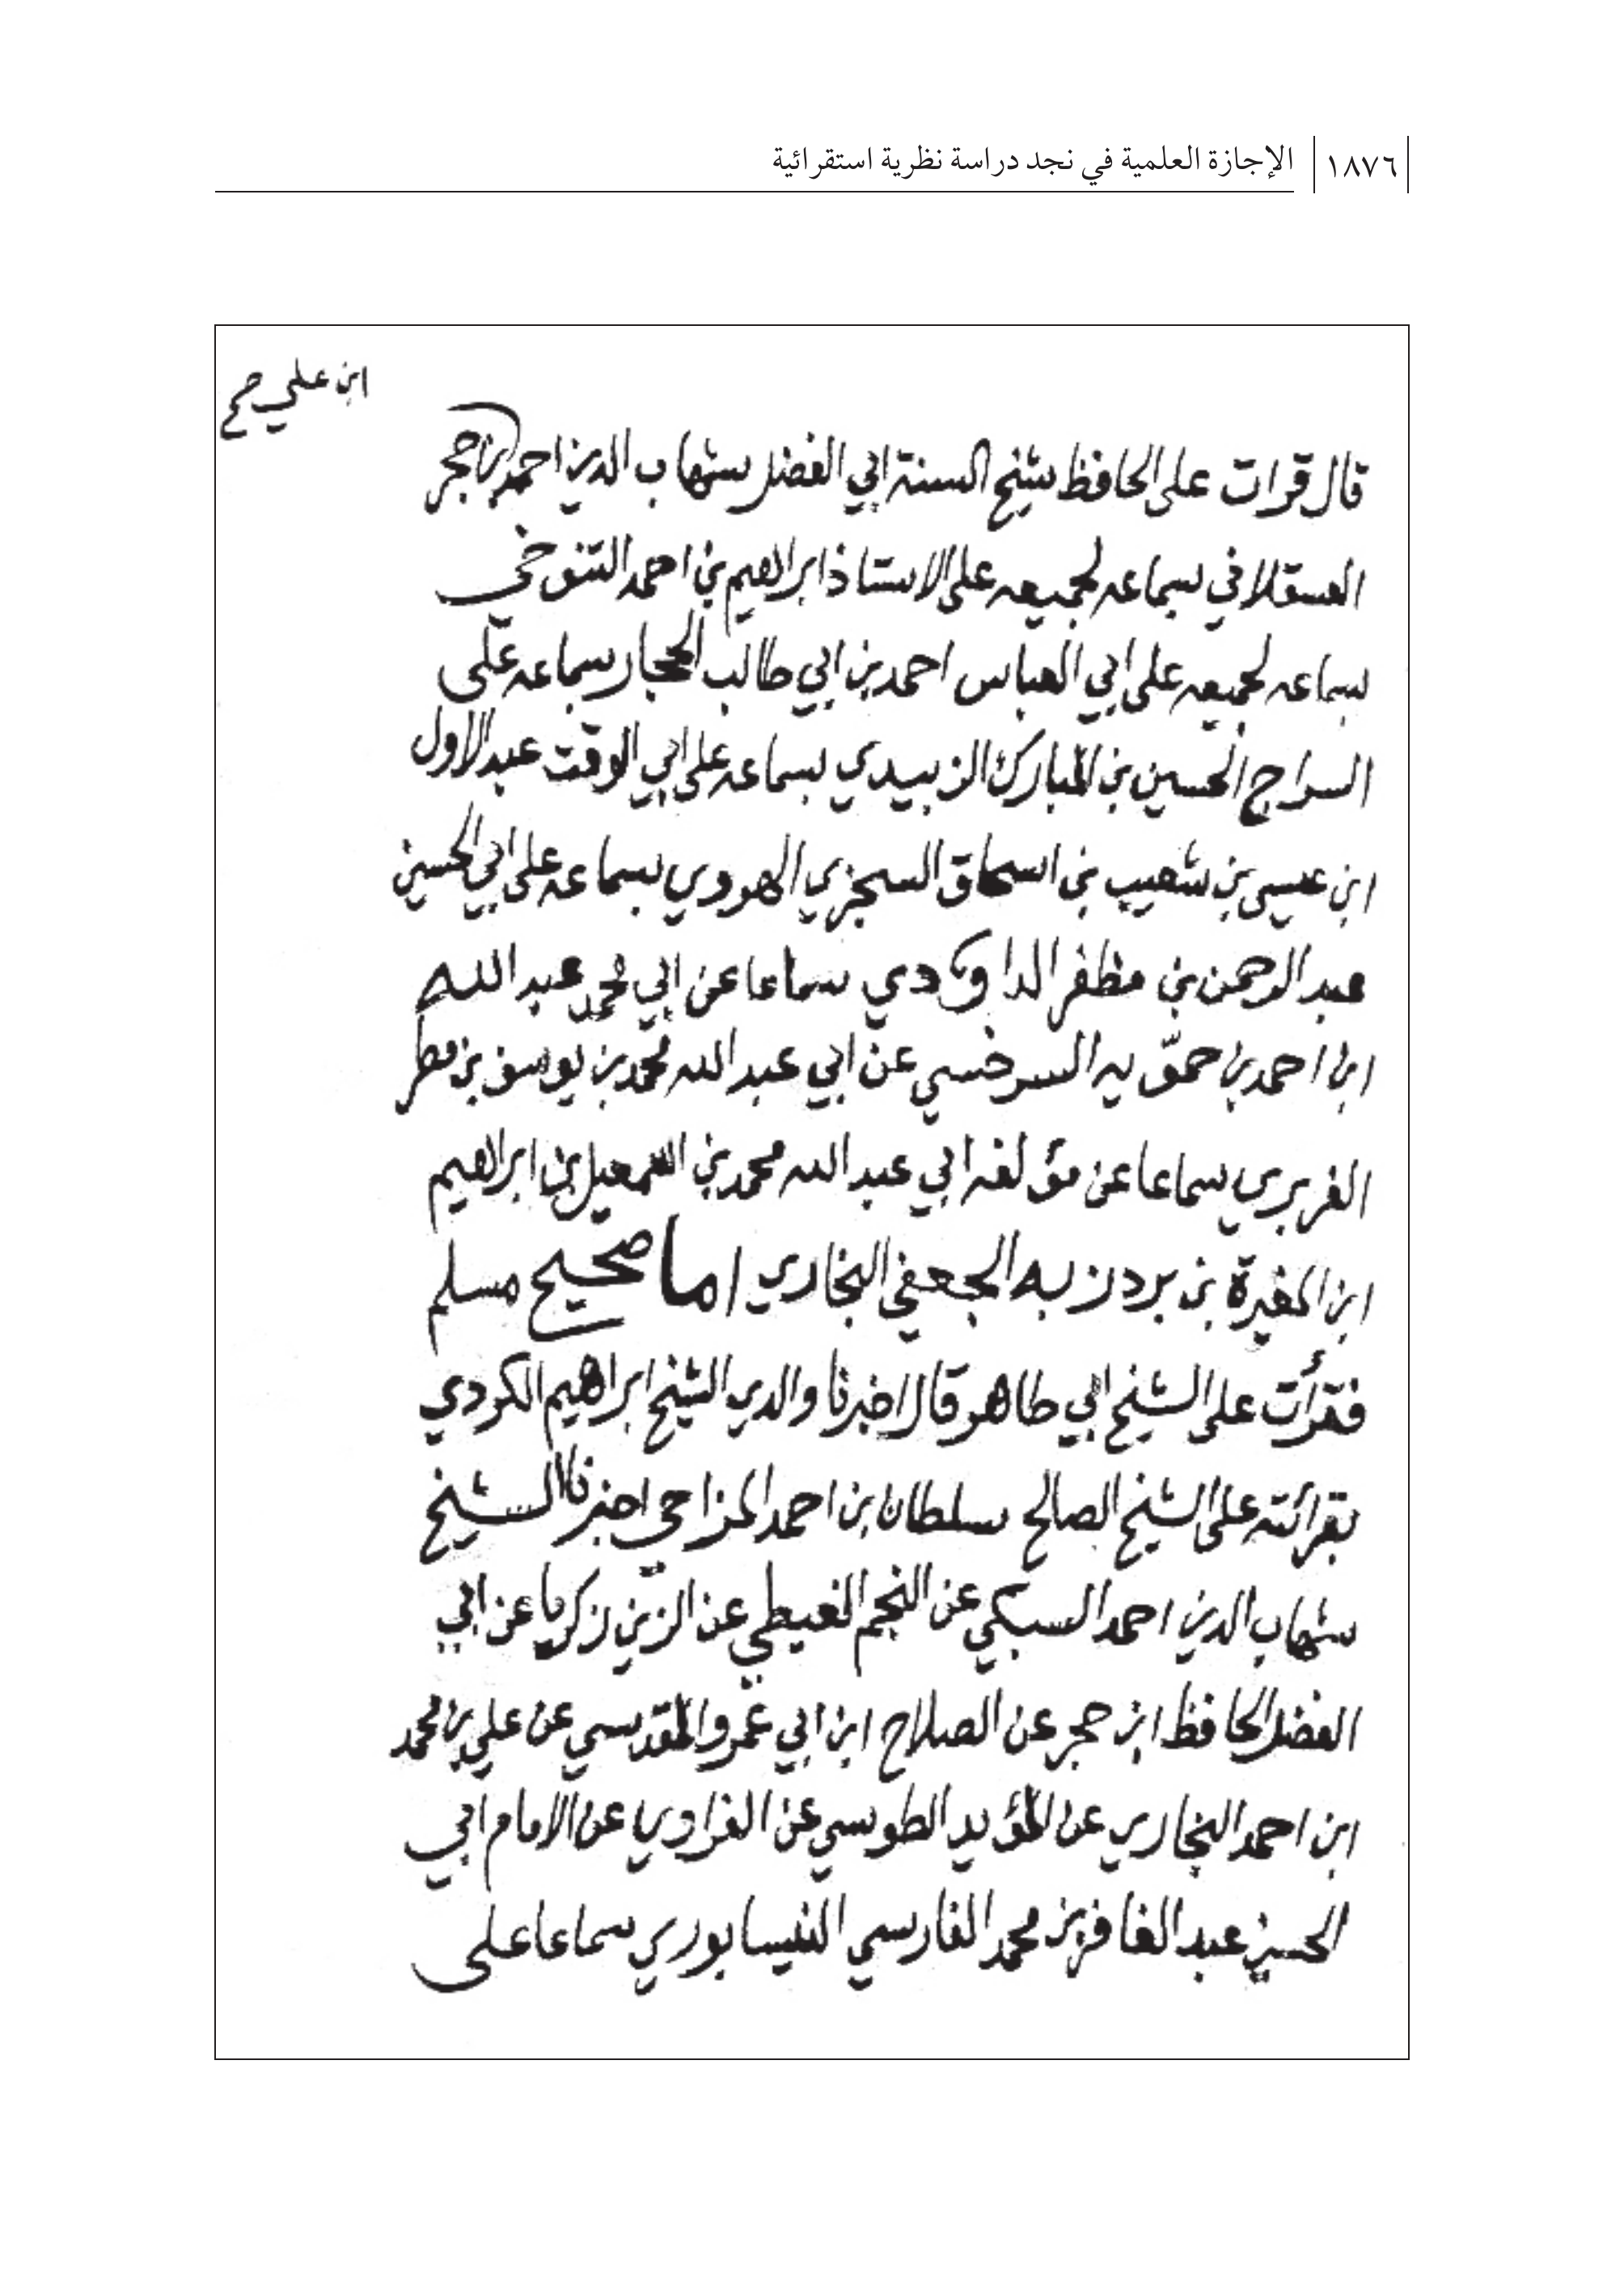 ١٨٧٦ الإجازة العلمية في نجد دراسة نظرية استقرائية
ابن علي صح
قال قرات على الحافظ شيخ السنة ابي الفضل شهاب الدين احمد بن حجر
العسقلاني بسماعه لجميعه على الاستاذ ابراهيم بن احمد التنوخي
بسماعه لجميعه على ابي العباس احمد بن ابي طالب الحجار بسماعه على
السراج الحسين بن المبارك الزبيدي بسماعه على ابي الوقت عبد الاول
ابن عيسى بن شعيب بن اسحاق السجزي الهروي بسماعه على ابي الحسين
عبد الرحمن بن مظفر الداوودي سماعا عن ابي محمد عبد الله
ابن احمد بن حمّويه السرخسي عن ابي عبد الله محمد بن يوسف بن مطر
الفربري سماعا عن مؤلفه ابي عبد الله محمد بن اسمعيل بن ابراهيم
ابن المغيرة بن بردزبه الجعفي البخاري اما صحيح مسلم
فقرأت على الشيخ ابي طاهر قال اخبرنا والدي الشيخ ابراهيم الكردي
بقرائته على الشيخ الصالح سلطان ابن احمد المزاحي اخبرنا الشيخ
شهاب الدين احمد السبكي عن النجم الغيطي عن الزين زكريا عن ابي
الفضل الحافظ ابن حجر عن الصلاح ابن ابي عمرو المقدسي عن علي بن محمد
ابن احمد البخاري عن المؤيد الطوسي عن الفراوي عن الامام ابي
الحسين عبد الغافر بن محمد الفارسي النيسابوري سماعا على